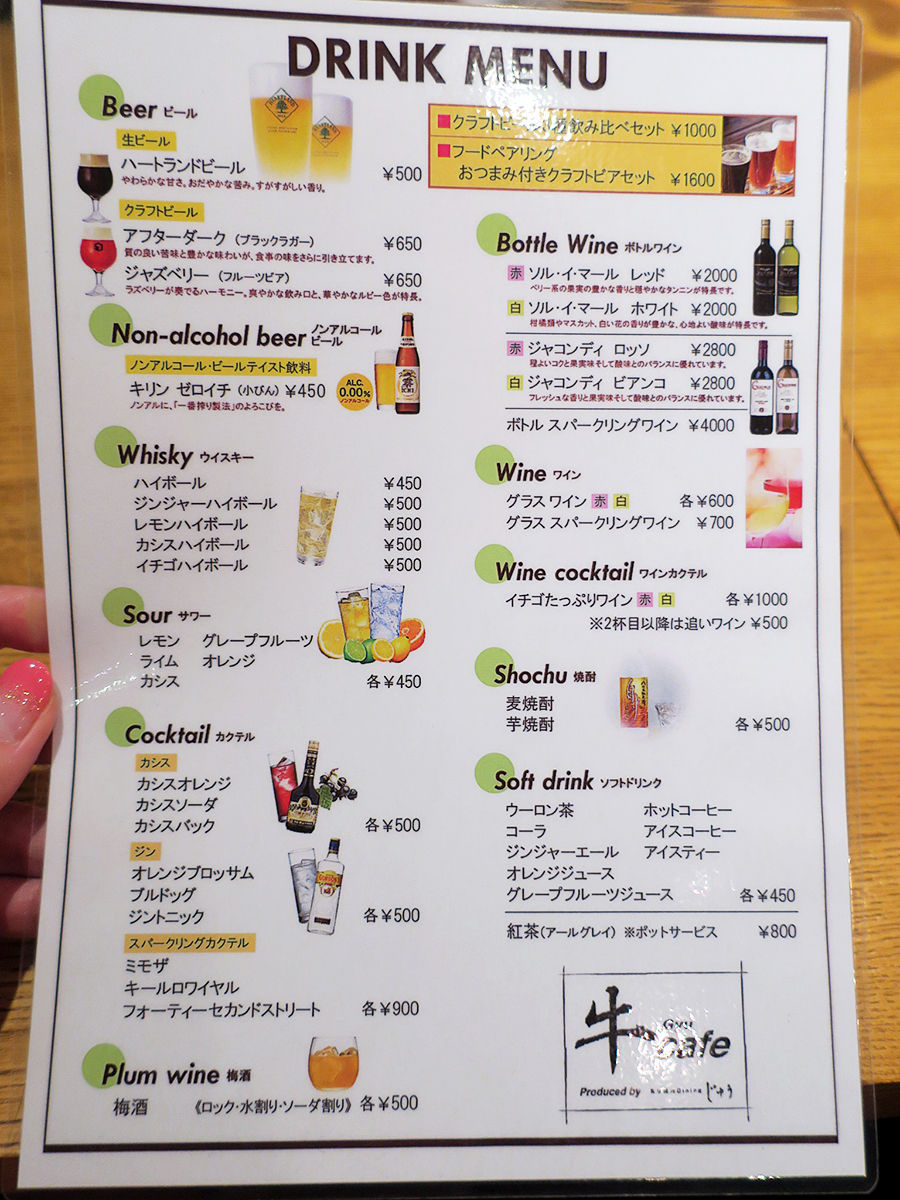 DRINK MENU
Beer ビール
生ビール
ハートランドビール ¥500
やわらかな甘さ。おだやかな苦み。すがすがしい香り。
クラフトビール
アフターダーク（ブラックラガー） ¥650
質の良い苦味と豊かな味わいが、食事の味をさらに引き立てます。
ジャズベリー（フルーツビア） ¥650
ラズベリーが奏でるハーモニー。爽やかな飲み口と、華やかなルビー色が特長。
Non-alcohol beer ノンアルコール
ビール
ノンアルコール・ビールテイスト飲料
キリン ゼロイチ（小びん）¥450
ノンアルに、「一番搾り製法」のよろこびを。
ALC.
0.00%
ノンアルコール
Whisky ウイスキー
ハイボール ¥450
ジンジャーハイボール ¥500
レモンハイボール ¥500
カシスハイボール ¥500
イチゴハイボール ¥500
Sour サワー
レモン グレープフルーツ
ライム オレンジ
カシス 各¥450
Cocktail カクテル
カシス
カシスオレンジ
カシスソーダ
カシスバック 各¥500
ジン
オレンジブロッサム
ブルドッグ
ジントニック 各¥500
スパークリングカクテル
ミモザ
キールロワイヤル
フォーティーセカンドストリート 各¥900
Plum wine 梅酒
梅酒 《ロック・水割り・ソーダ割り》 各¥500
■クラフトビール 飲み比べセット ¥1000
■フードペアリング
おつまみ付きクラフトビアセット ¥1600
Bottle Wine ボトルワイン
赤 ソル・イ・マール レッド ¥2000
ベリー系の果実の豊かな香りと穏やかなタンニンが特長です。
白 ソル・イ・マール ホワイト ¥2000
柑橘類やマスカット、白い花の香りが豊か、心地よい酸味が特長です。
赤 ジャコンディ ロッソ ¥2800
程よいコクと果実味そして酸味とのバランスに優れています。
白 ジャコンディ ビアンコ ¥2800
フレッシュな香りと果実味そして酸味とのバランスに優れています。
ボトル スパークリングワイン ¥4000
Wine ワイン
グラス ワイン 赤 白 各¥600
グラス スパークリングワイン ¥700
Wine cocktail ワインカクテル
イチゴたっぷりワイン 赤 白 各¥1000
※2杯目以降は追いワイン ¥500
Shochu 焼酎
麦焼酎
芋焼酎 各¥500
Soft drink ソフトドリンク
ウーロン茶 ホットコーヒー
コーラ アイスコーヒー
ジンジャーエール アイスティー
オレンジジュース
グレープフルーツジュース 各¥450
紅茶（アールグレイ）※ポットサービス ¥800
牛 Gyu
cafe
Produced by じゅう